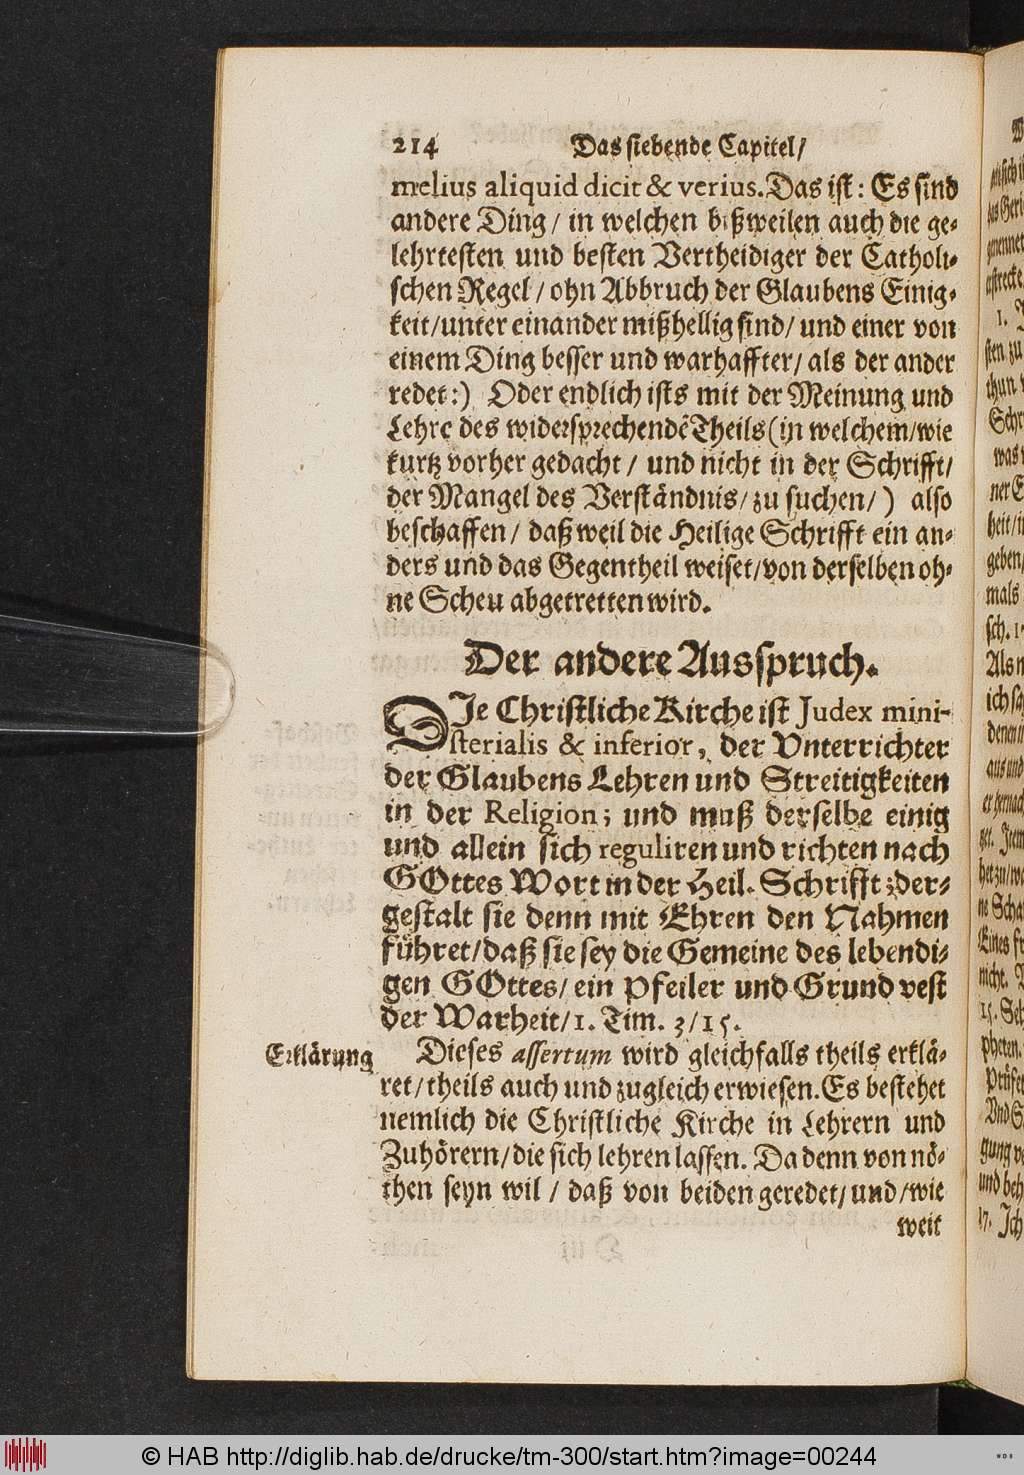 214 Das siebende Capitel/
melius aliquid dicit & verius. Das ist: Es sind
andere Ding/ in welchen bißweilen auch die ge-
lehrtesten und besten Vertheidiger der Catholi-
schen Regel/ ohn Abbruch der Glaubens Einig-
keit/unter einander mißhellig sind/ und einer von
einem Ding besser und warhaffter/ als der ander
redet:) Oder endlich ists mit der Meinung und
Lehre des widersprechendẽ Theils (in welchem/wie
kurtz vorher gedacht/ und nicht in der Schrifft/
der Mangel des Verständnis/ zu suchen/) also
beschaffen/ daß weil die Heilige Schrifft ein an-
ders und das Gegentheil weiset/von derselben oh-
ne Scheu abgetretten wird.
Der andere Ausspruch.
DIe Christliche Kirche ist Judex mini-
sterialis & inferior, der Vnterrichter
der Glaubens Lehren und Streitigkeiten
in der Religion; und muß derselbe einig
und allein sich reguliren und richten nach
GOttes Wort in der Heil. Schrifft; der-
gestalt sie denn mit Ehren den Nahmen
führet/daß sie sey die Gemeine des lebendi-
gen GOttes/ ein Pfeiler und Grundvest
der Warheit/1. Tim. 3/15.
Erklärung
Dieses assertum wird gleichfalls theils erklä-
ret/ theils auch und zugleich erwiesen. Es bestehet
nemlich die Christliche Kirche in Lehrern und
Zuhörern/die sich lehren lassen. Da denn von nö-
then seyn wil/ daß von beiden geredet/und/wie
weit
© HAB http://diglib.hab.de/drucke/tm-300/start.htm?image=00244